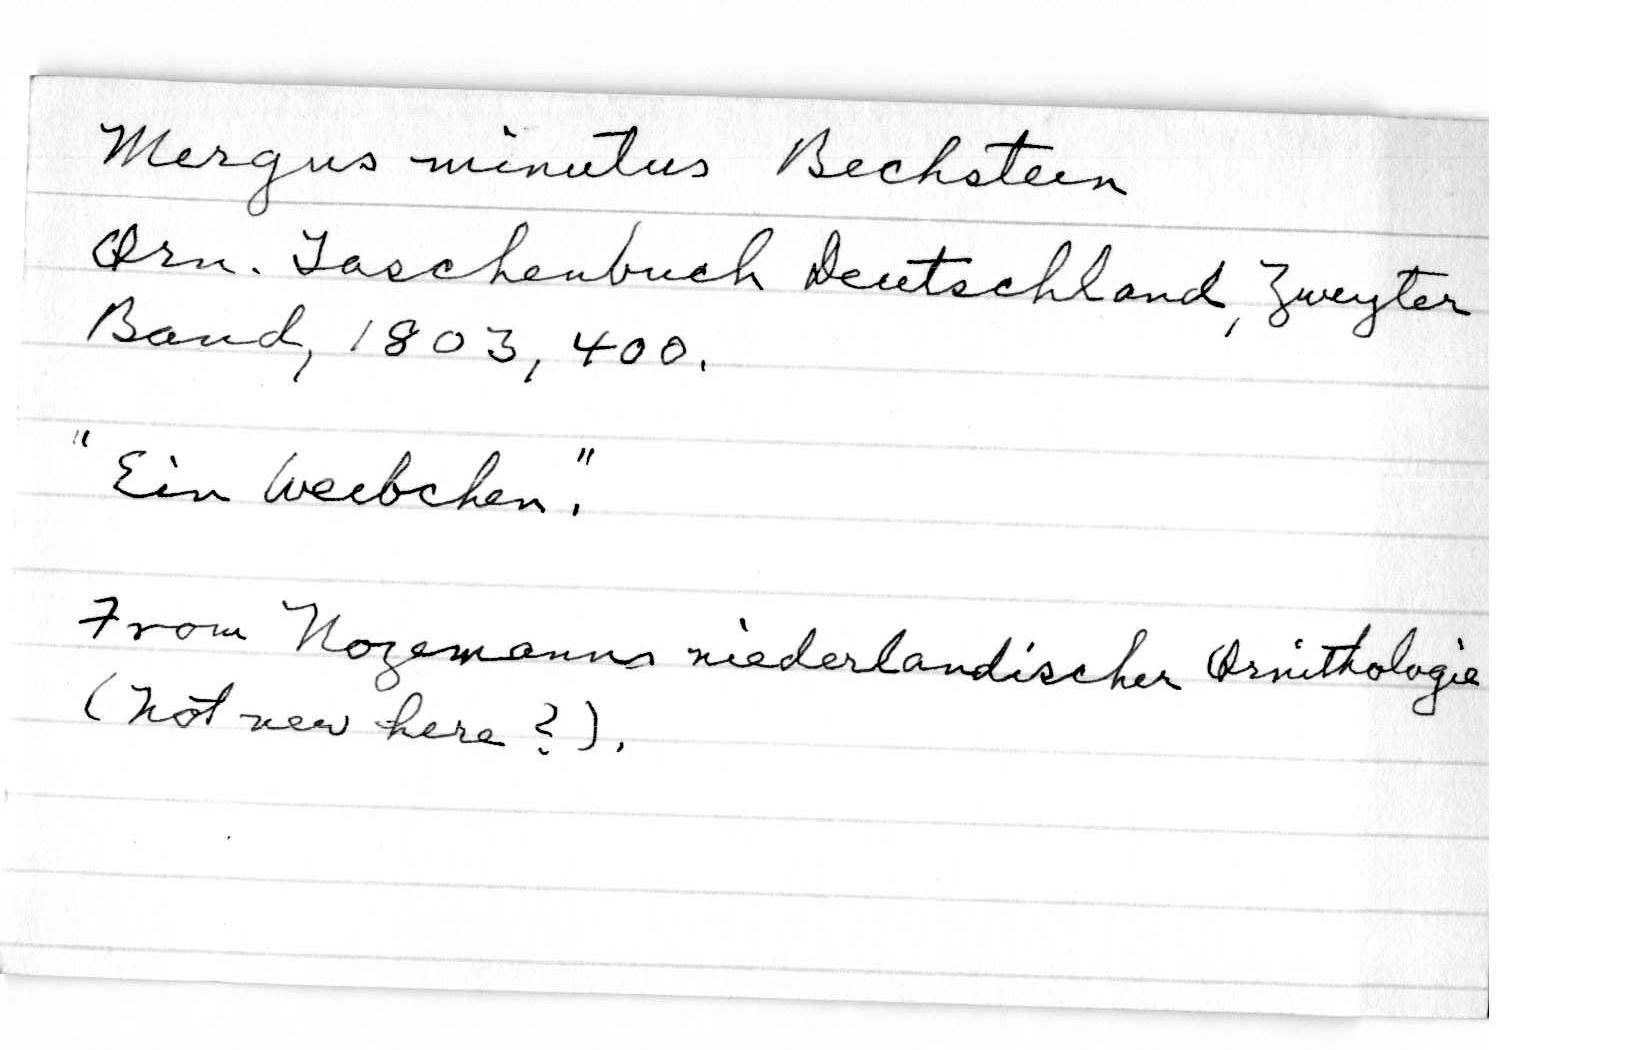 Mergus minutus Bechstein
Orn. Taschenbuch Deutschland, Zweyter
Band, 1803, 400.
"Ein Weibchen."
From Nozemanns niederlandischer Ornithologie
(Not new here?).